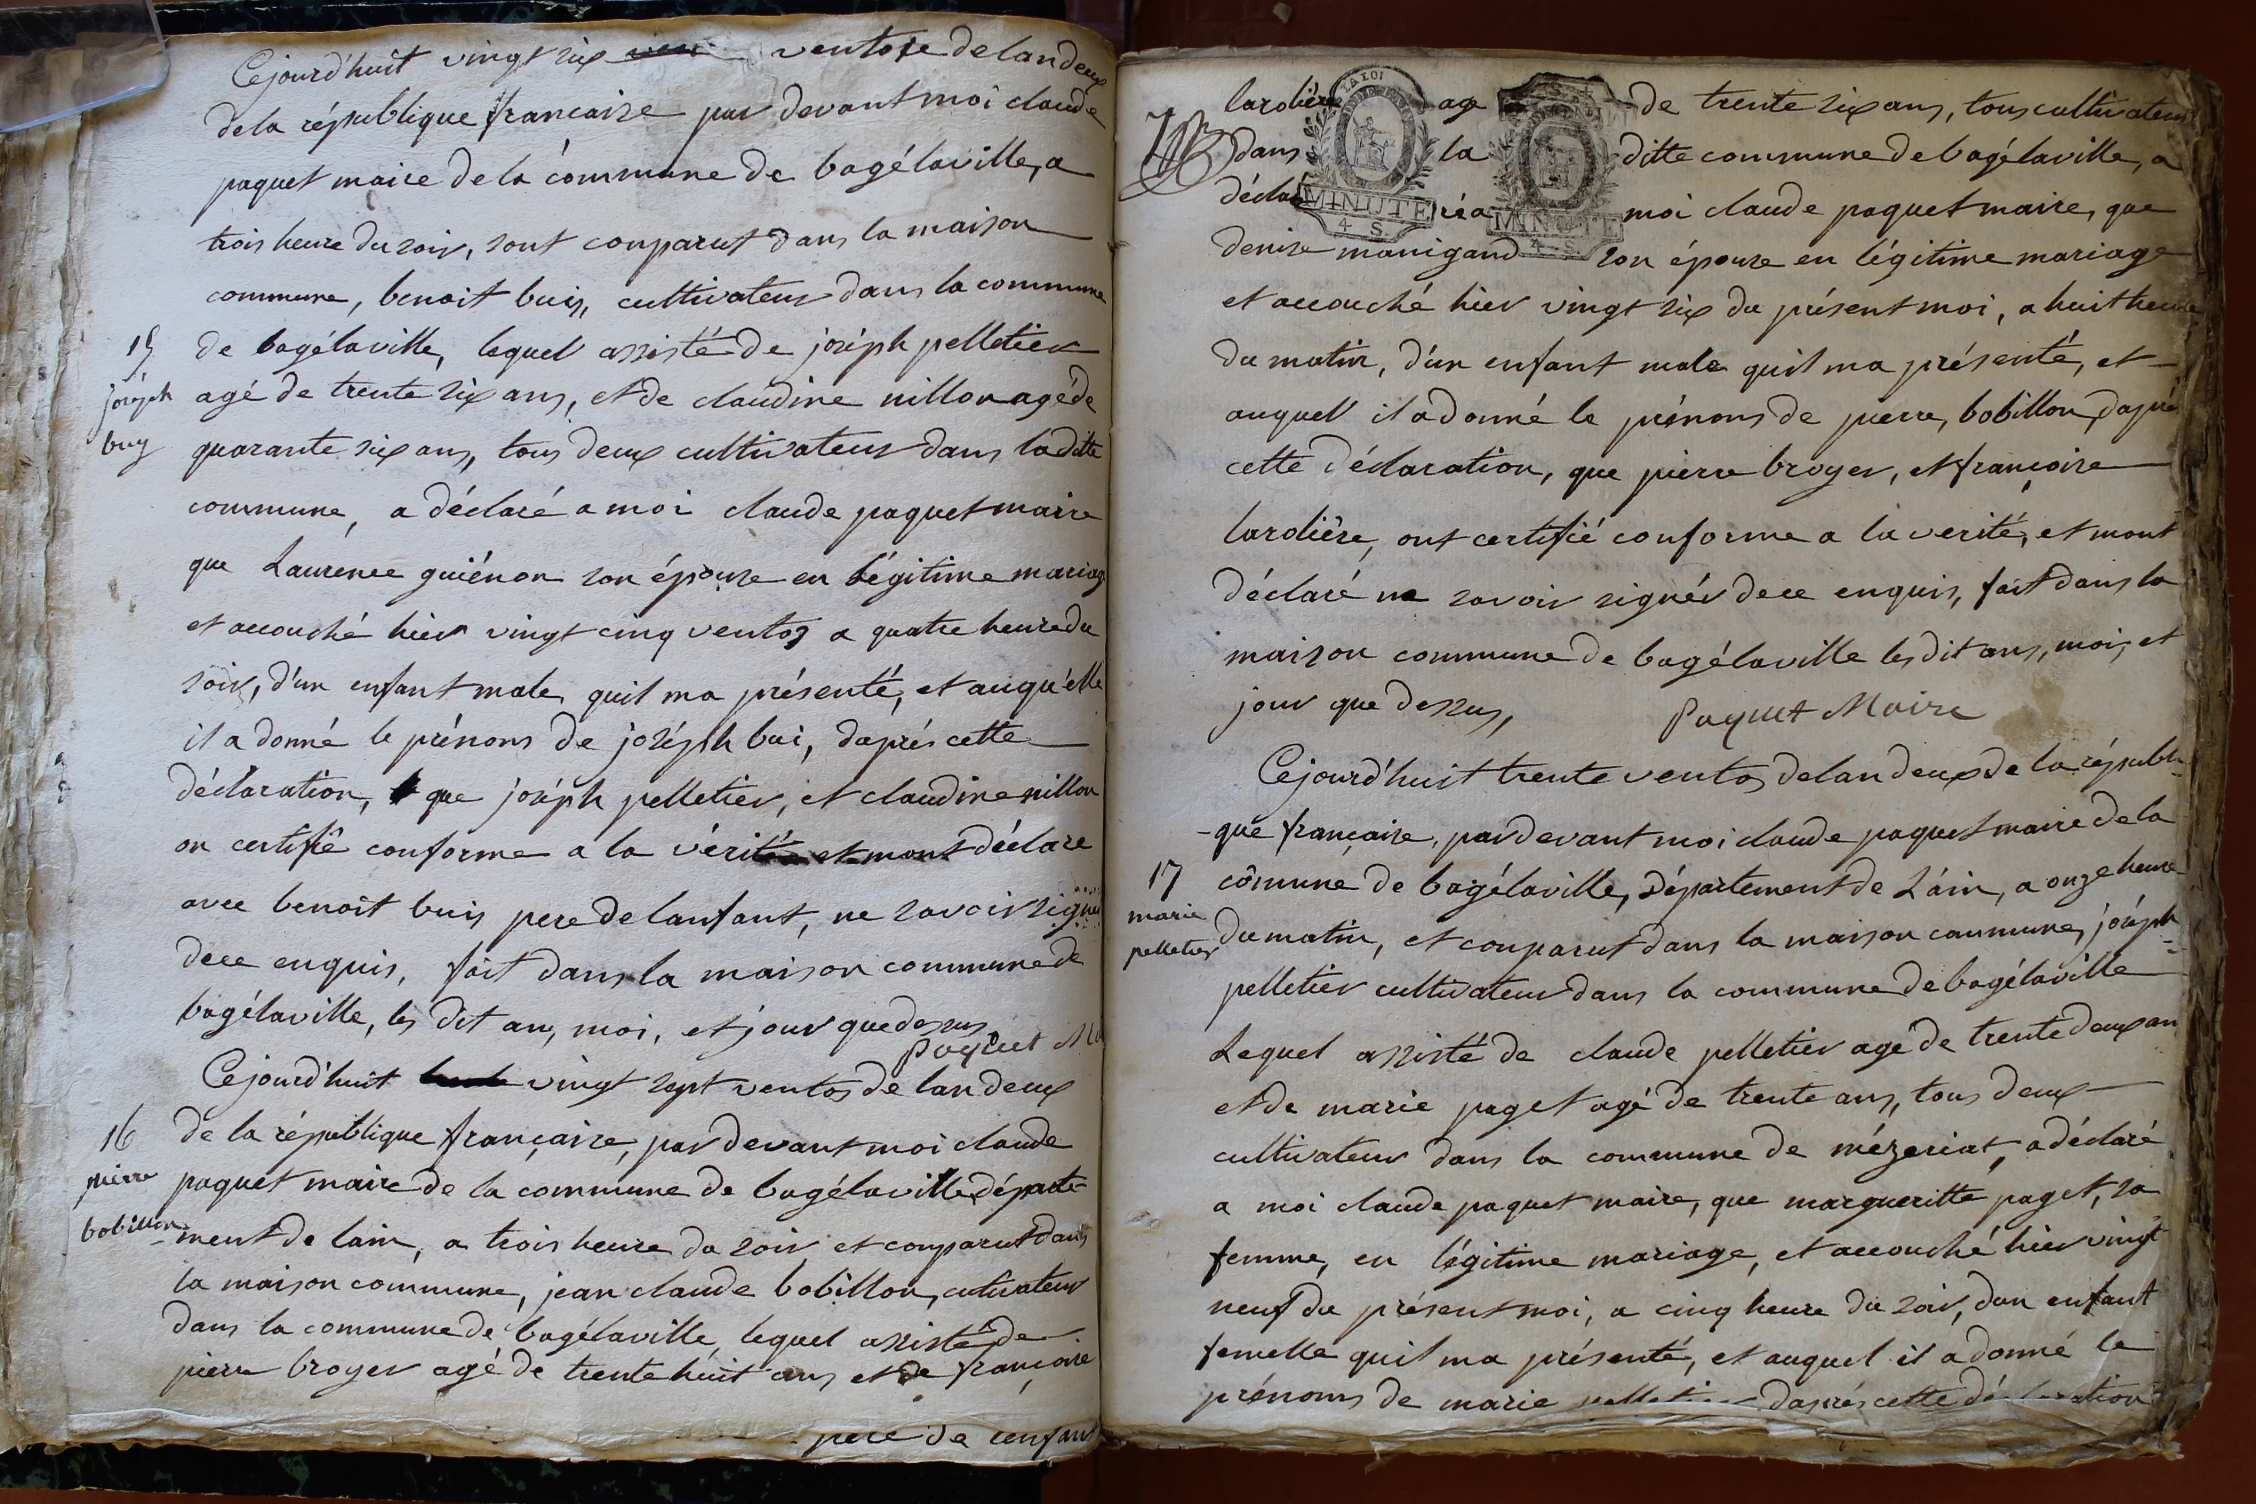 Cejourd'huit vingt six ventose de lan deux
de la république francaise par devant moi claude
paquet maire de la commune de bagélaville, a
trois heure du soir, sont conparut dans la maison
commune, benoit buis, cultivateur dans la commune
15
joséph
buy
de bagélaville, lequel assisté de joséph pelletier
agé de trente six ans, et de claudine nillon agé de
quarante six ans, tous deux cultivateur dans la ditte
commune, a déclaré a moi claude paquet maire
que Laurence guiénon son épouse en légitime mariage
et accouché hier vingt cinq ventos a quatre heure du
soir, d'un enfant male quil ma présenté, et auqu'elle
il a donné le prénons de joséph bui, daprés cette
déclaration, que joséph pelletier, et claudine nillon
on certifié conforme a la vérité et mont déclare
avec benoit buis pere de lanfant, ne savoir signer
de ce enquis, fait dans la maison commune de
bagélaville, les dit an, moi, et jour que desus
paquet Ma
Cejourd'huit vingt sept ventos de lan deux
16
pierre
bobillon
de la république françaire, par devant moi claude
paquet maire de la commune de bagélaville, départe-
ment de lain, a trois heure du soir et conparut dans
la maison commune, jean claude bobillon, cutivateur
dans la commune de bagélaville, lequel assisté de
pierre broyer agé de trente huit ans et de françoise
pere de lenfant
larolière age de trente six ans, tous cultivateur
dans la ditte commune de bagélaville, a
LA LOI
MINUTE
4 S.
MINUTE
4 S.
déclaré a moi claude paquet maire, que
denise manigand son épouse en légitime mariage
et accouché hier vingt six du présent moi, a huit heure
du matin, d'un enfant male quil ma présenté, et
auquel il a donné le prénons de pierre, bobillon, daprés
cette déclaration, que pierre broyer, et françoise
larolière, ont certifié conforme a la verité, et mont
déclaré ne savoir signér de ce enquis, fait dans la
maison commune de bagélaville les dit ans, mois, et
jour que dessus,
Paquet Maire
Cejourd'huit trente ventos de lan deux de la républi-
-que françaire, par devant moi claude paquet maire de la
17
marie
pelletier
cômune de bagélaville, département de L'ain, a onze heure
du matin, et conparut dans la maison commune, joséph
pelletier cultivateur dans la commune de bagélaville
Lequel assisté de claude pelletier age de trente deux an
et de marie paget agé de trente ans, tous deux
cultivateur dans la commune de mézeriat, a déclaré
a moi claude paquet maire, que margueritte paget, sa
femme, en légitime mariage, et accouché hier vingt
neuf du présent moi, a cinq heure du soir, dun enfant
femelle quil ma présenté, et auquel il a donné le
prénoms de marie pelletier daprés cette déclaration